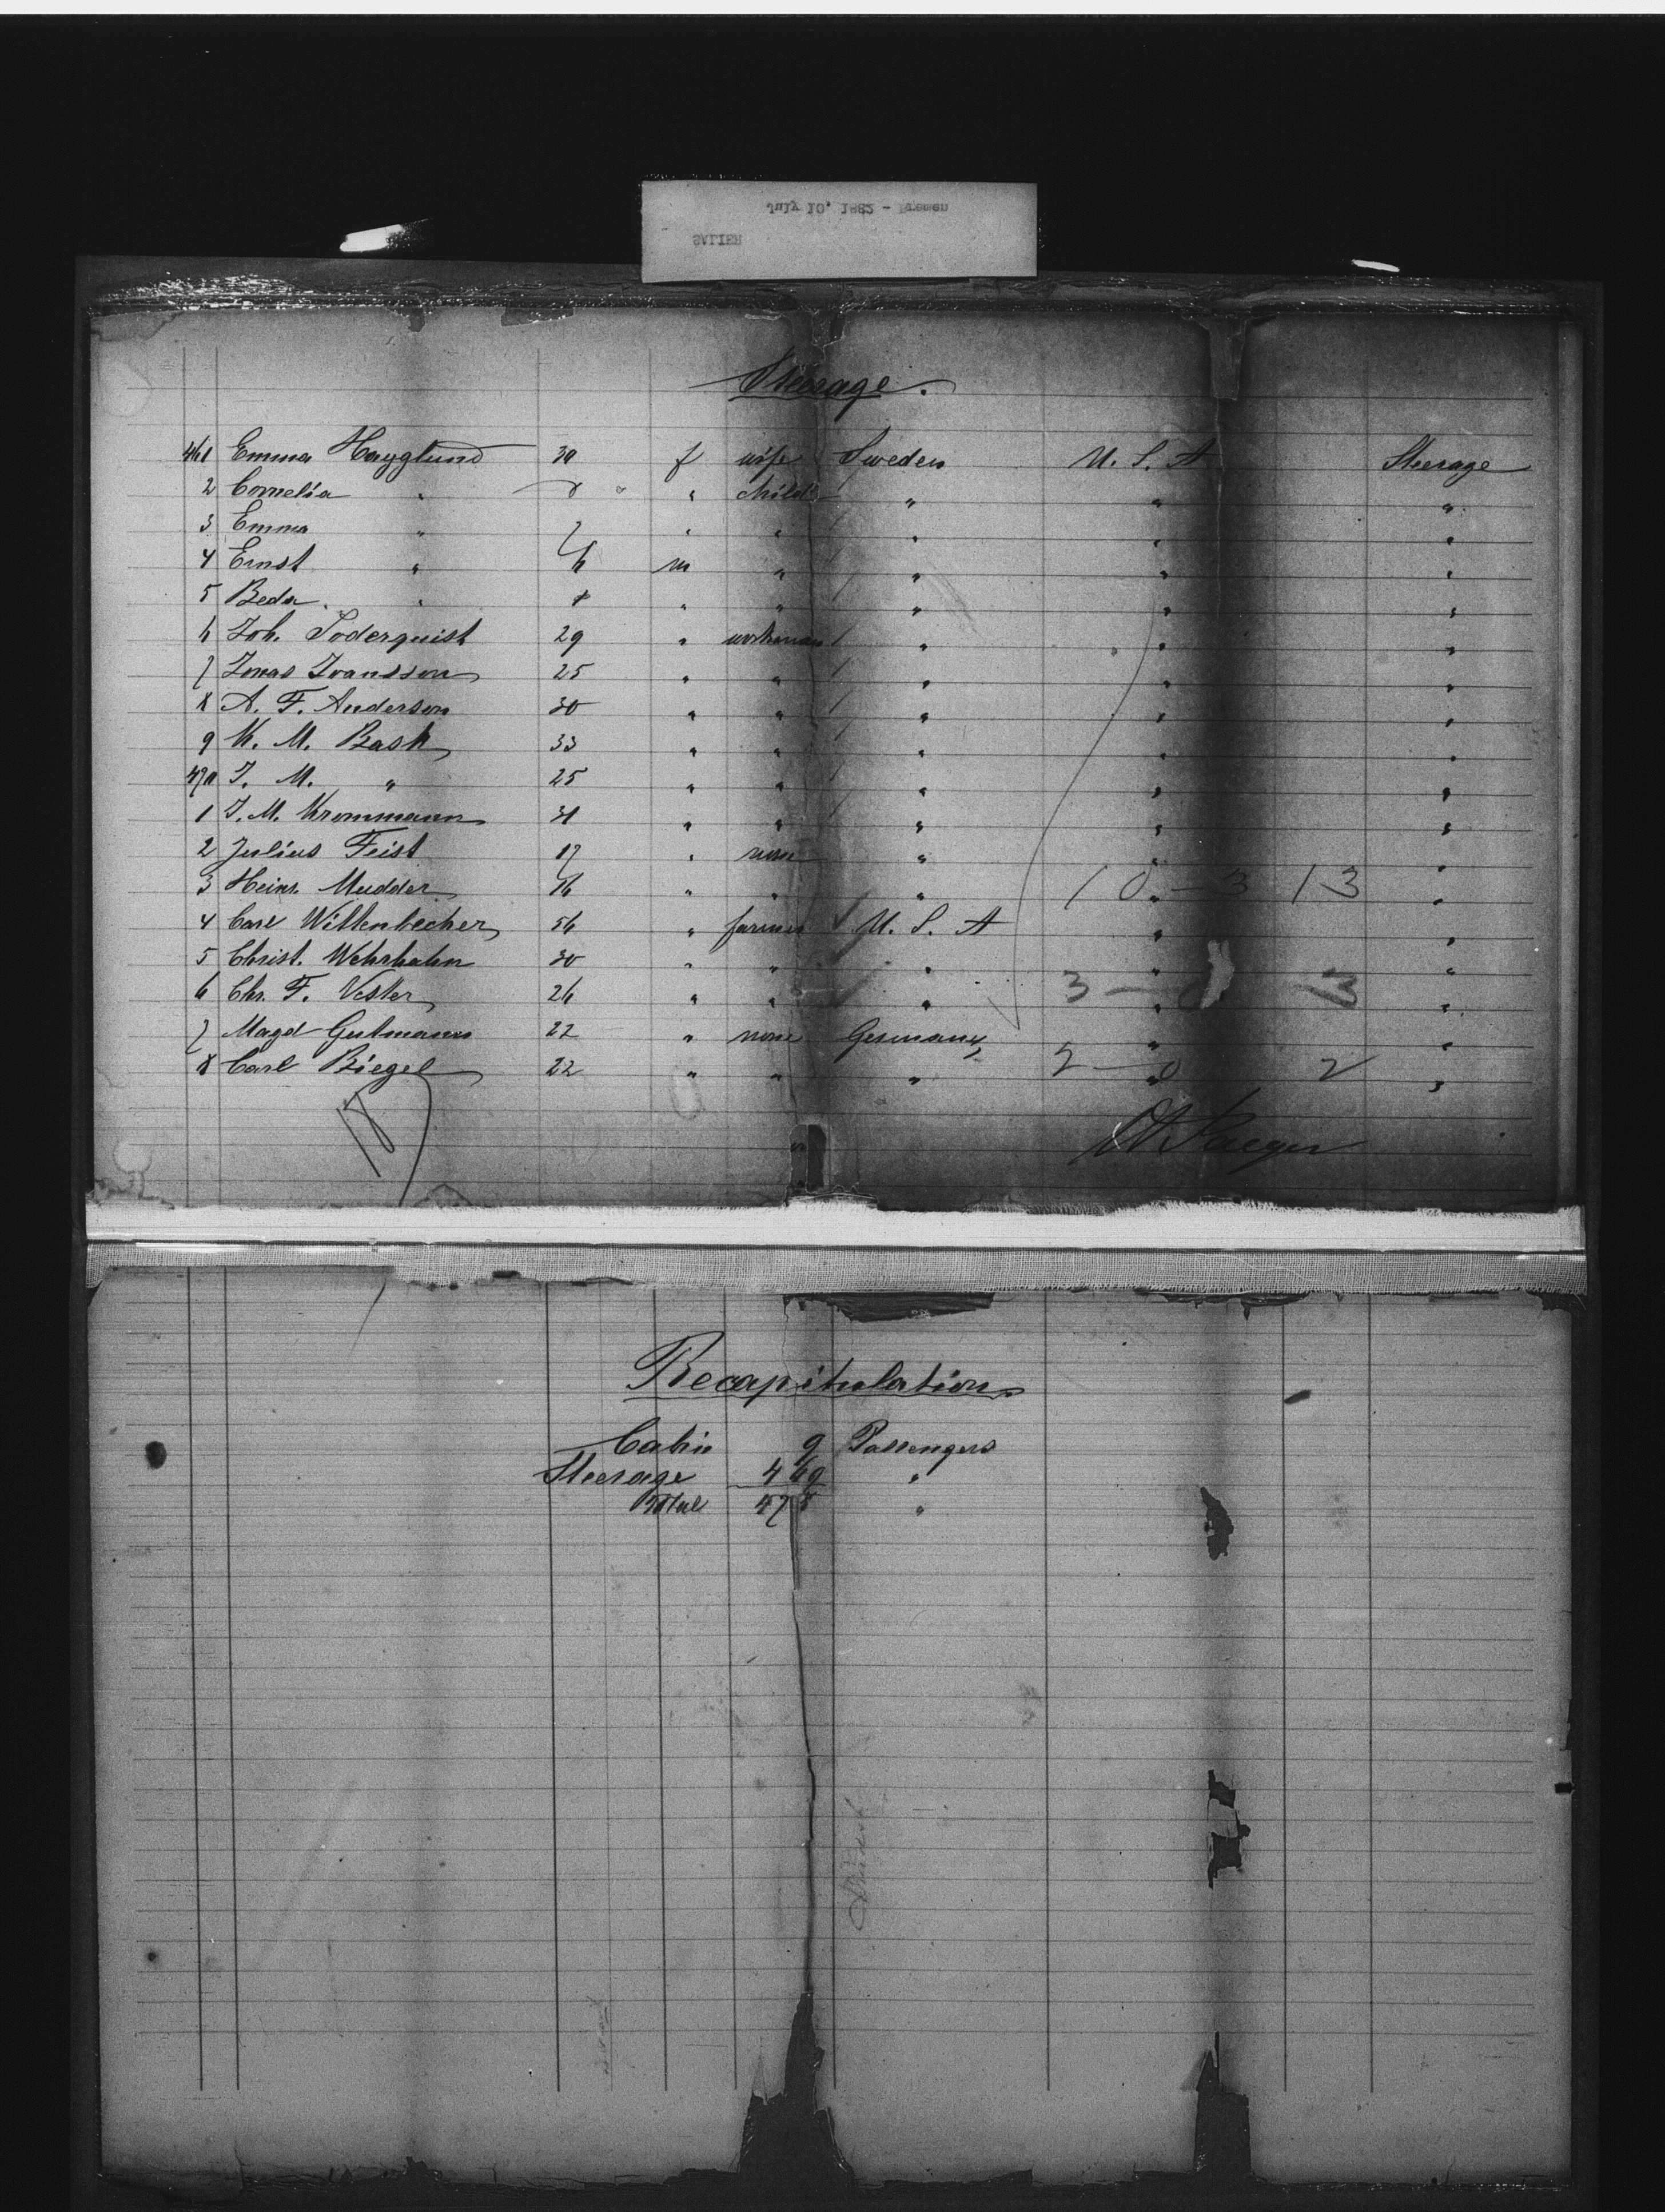 July 10, 1882 - Bremen
SALIER
Steerage.
461 Emma Hagglund 30 f wife Sweden U. S. A Steerage
2 Cornelia " 8 " " child " " "
3 Emma " 7 " " " " "
4 Ernst " 6 m " " " "
5 Beda " " " " " "
6 Joh. Soderquist 29 " workman " " "
7 Jonas Ivansson 25 " " " " "
8 A. F. Anderson 30 " " " " "
9 K. M. Bask 33 " " " " "
470 J. M. " 25 " " " " "
1 J. M. Krommann 31 " " " " "
2 Julius Feist 17 " none " " "
3 Heinr. Mudder 16 " " " " 10 - 3 13 "
4 Carl Wittenbecher 56 " farmer U. S. A " "
5 Christ. Wehrhahn 30 " " " " "
6 Chr. F. Vester 26 " " " 3 - 0 " 3 "
7 Magd Gutmann 22 " none Germany " "
8 Carl Biegel 22 " " " 2 - 0 " 2 "
18
Recapitulation
Cabin 9 Passengers
Steerage 469 "
Total 478 "